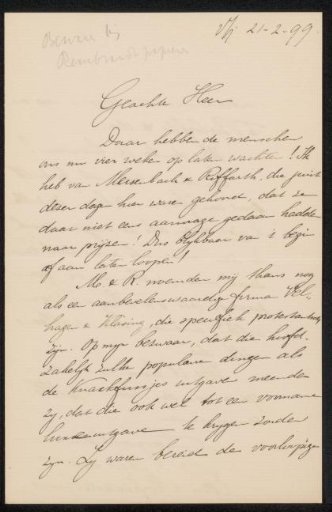 Bewaar bij
Rembrandt papieren
21-2-99.
Geachte Heer
Daar hebben de menschen
ons nu vier weken op laten wachten! Ik
heb van Meisenbach & Riffarth, die juist
dezer dagen hier waren gehoord, dat ze
daar niet eens aanvrage gedaan hadden
naar prijzen! Dus blijkbaar van 't begin
af aan laten loopen!
M. & R. noemden mij thans nog
als een aanbevelenswaardige firma Vel-
hagen & Klasing, die specifiek protestantsch
zijn. Op mijn bezwaar, dat die hoofd-
zakelijk zulke populaire dingen als
de Knackfussjes uitgaven meenden
zij, dat die ook wel tot een voorname
uitgave te krijgen zouden
zijn. Zij waren bereid de voorloopige